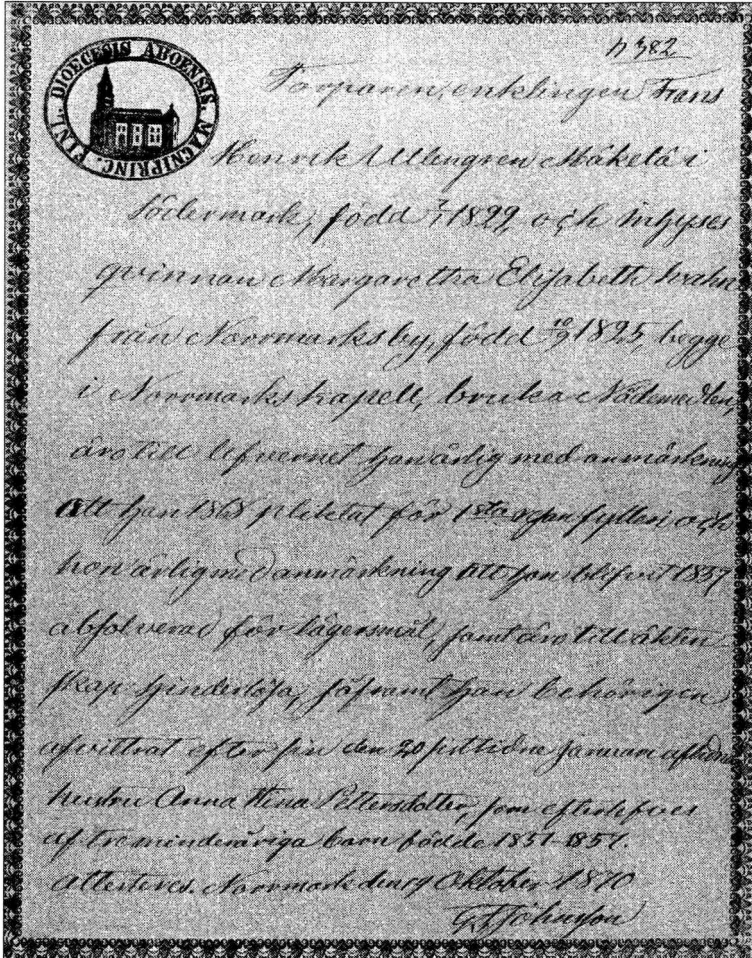 FINL. DIOECESIS ABOENSIS. MAGNIPRINC.
p 382
Torparen, enklingen Frans
Henrik Ullengren Mäkelä i
Södermark, född 7/1 1829, och inhyses
qvinnan Margaretha Elisabeth
från Norrmarks by, född 10/9 1825, begge
i Norrmarks kapell, bruka Nådemedlen,
äro till lefvernet han ärlig med anmärkning
att han 1868 pliktat för 1sta ggn fylleri och
hon ärlig med anmärkning att hon blifvit 1857
absolverad för lägersmål, samt äro till äkten
skap hinderlösa, såframt han behörigen
afvittrat efter sin den 20 sistlidne Januari aflidna
hustru Anna Stina Pettersdotter, som efterlefves
af tre minderåriga barn födde 1851-1857.
Attesteres. Norrmark den 19 Oktober 1870
Johnsson